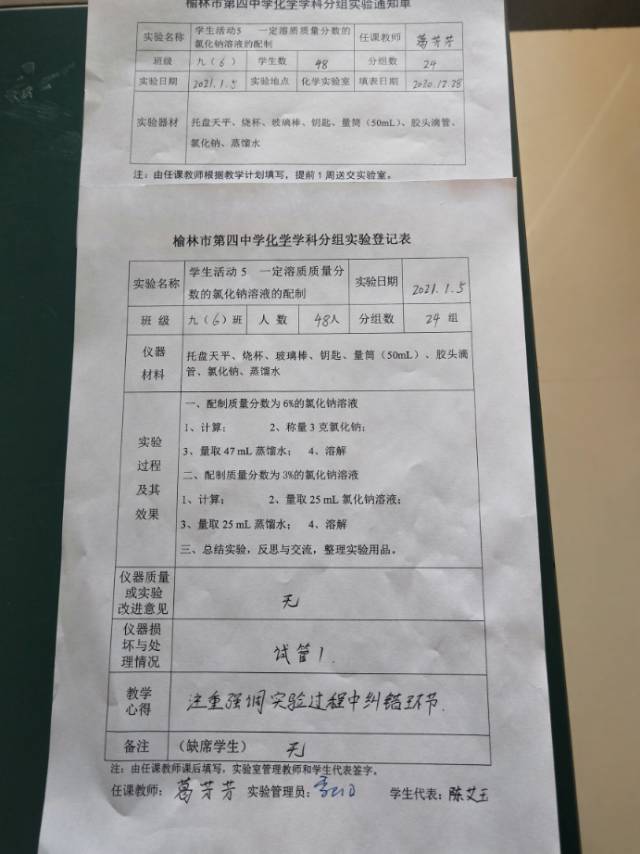 榆林市第四中学化学学科分组实验通知单
实验名称 学生活动5 一定溶质质量分数的 任课教师 葛芽芽
氯化钠溶液的配制
班级 九（6） 学生数 48 分组数 24
实验日期 2021.1.5 实验地点 化学实验室 填表日期 2020.12.28
实验器材 托盘天平、烧杯、玻璃棒、钥匙、量筒（50mL）、胶头滴管、
氯化钠、蒸馏水
注：由任课教师根据教学计划填写，提前1周送交实验室。
榆林市第四中学化学学科分组实验登记表
实验名称 学生活动5 一定溶质质量分 实验日期 2021.1.5
数的氯化钠溶液的配制
班 级 九（6）班 人 数 48人 分组数 24 组
仪器 托盘天平、烧杯、玻璃棒、钥匙、量筒（50mL）、胶头滴
材料 管、氯化钠、蒸馏水
实验
过程
及其
效果
一、配制质量分数为6%的氯化钠溶液
1、计算； 2、称量3克氯化钠；
3、量取47 mL 蒸馏水； 4、溶解
二、配制质量分数为3%的氯化钠溶液
1、计算； 2、量取25 mL 氯化钠溶液；
3、量取25 mL 蒸馏水； 4、溶解
三、总结实验，反思与交流，整理实验用品。
仪器质量
或实验
改进意见
无
仪器损
坏与处
理情况
试管1.
教学
心得
注重强调实验过程中纠错环节.
备注 （缺席学生） 无
注：由任课教师课后填写，实验室管理教师和学生代表签字。
任课教师：葛芽芽 实验管理员： 学生代表：陈艾玉